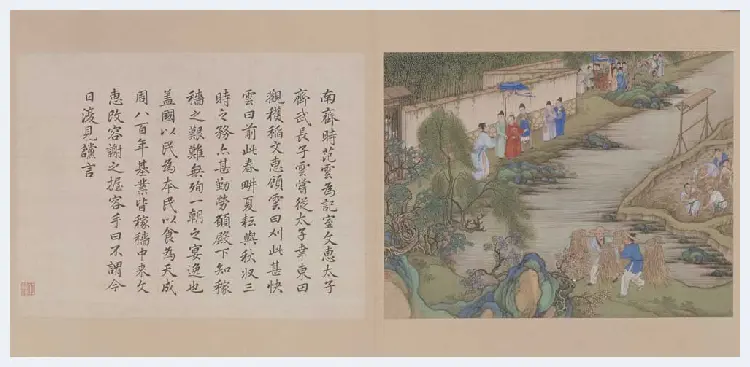 南齊時范雲為記室文惠太子
齊武長子雲嘗從太子幸東田
觀穫稻文惠顧雲曰刈此甚快
雲曰前此春畊夏耘與秋収三
時之務亦甚勤勞願殿下知稼
穡之艱難無殉一朝之宴逸也
蓋國以民為本民以食為天成
周八百年基業皆稼穡中来文
惠改容謝之握容手曰不謂今
日復見讜言